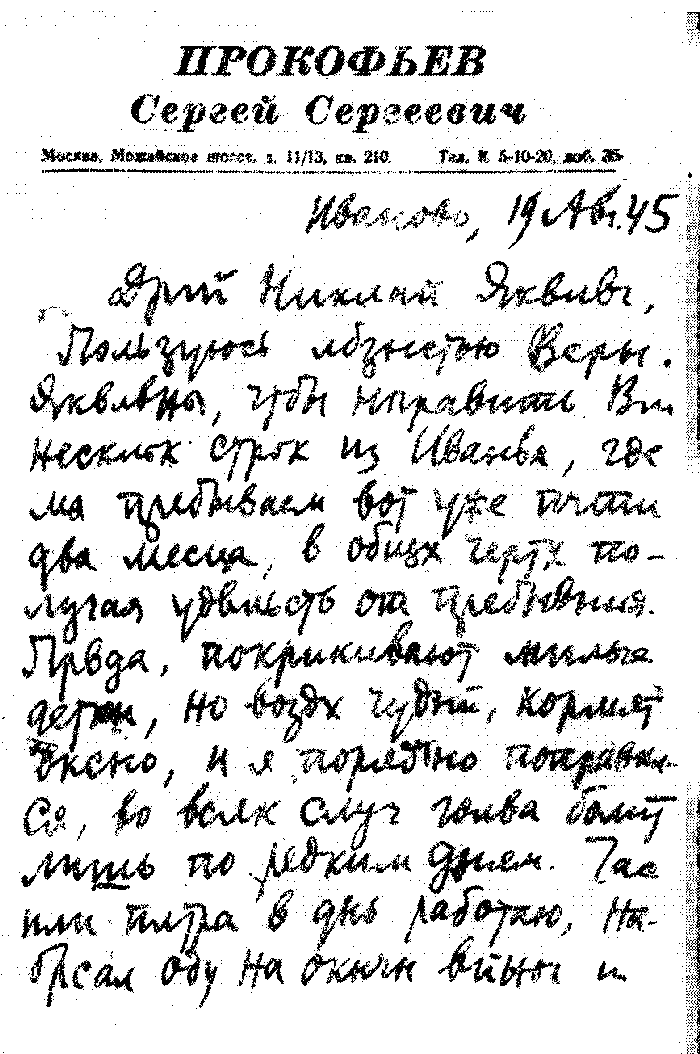 ПРОКОФЬЕВ
Сергей Сергеевич
Москва, Можайское шоссе, д. 11/13, кв. 210. Тел. К 5-10-20, доб. 35
Иваново, 19 Авг. 45
Дргй Николай Яквлвч,
Пользуюсь лбзнстью Веры
Яквлвны, чтбы направить Вм
нсклк строк из Иванва, где
мы пребываем вот уже почти
два месца, в общх чертх по-
лучая удвлств от пребывния.
Првда, покрикивают милые
детки, но воздх чудный, кормят
вксно, и я порядчно поправил-
ся, во всяк случ голва болит
лишь по редким дням. Час
или плтра в днь работаю, на-
брсал оду на окнчн війны и